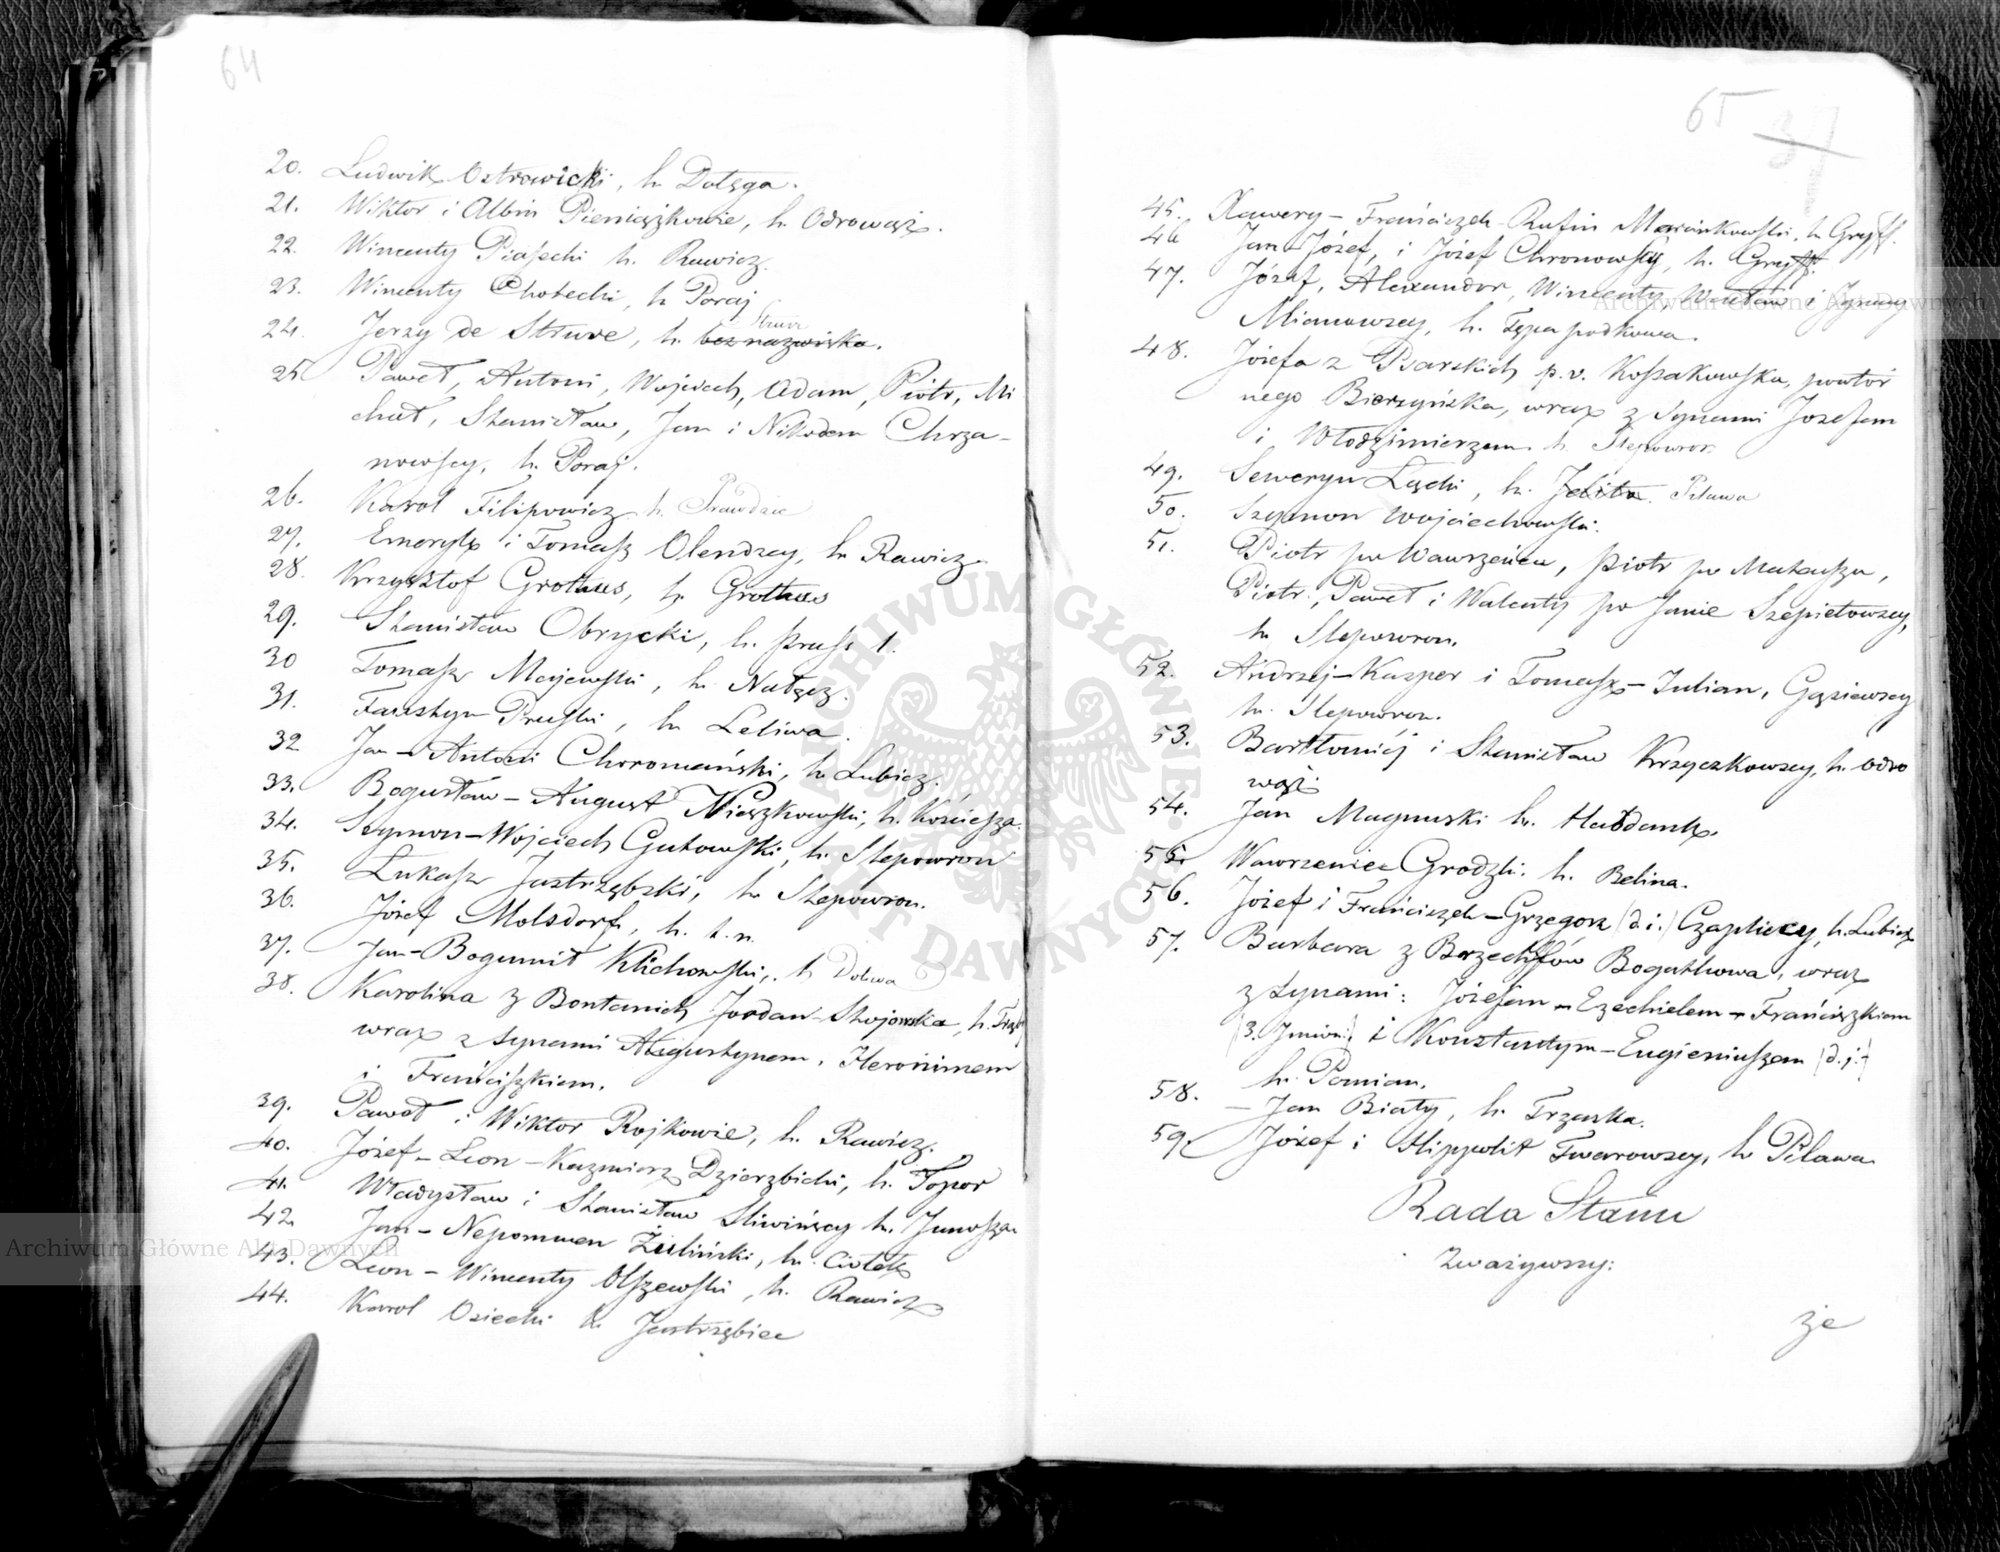 64
20. Ludwik Ostrowicki, h. Dołęga.
21. Wiktor i Albin Pieniążkowie, h. Odrowąż.
22. Wincenty Piasecki h. Rawicz.
23. Wincenty Chotecki, h. Poraj
Struve
24. Jerzy de Struve, h. bez nazwiska.
25 Paweł, Antoni, Wojciech, Adam, Piotr, Mi
chał, Stanisław, Jan i Nikodem Chrza-
nowscy, h. Poraj.
26. Karol Filipowicz h. Prawdzic
27. Emeryk i Tomasz Olendzcy, h. Rawicz
28. Krzysztof Grothus, h. Grothus
29. Stanisław Obrycki, h. Pruss 1.
30 Tomasz Majewski, h. Nałęcz.
31. Faustyn Pruski, h. Leliwa.
32 Jan-Antoni Choromański, h. Lubicz.
33. Bogusław-August Mieszkowski, h. Kościesza.
34. Szymon-Wojciech Gutowski, h. Slepowron
35. Łukasz Jastrzębski, h. Slepowron.
36. Józef Molsdorf, h. t. n.
37. Jan-Bogumił Klichowski, h Doliwa
38. Karolina z Bontanich Jordan-Stojowska, h. Trąby
wraz z synami Augustynem, Heronimem
i Franciszkiem.
39. Paweł i Wiktor Rojkowie, h. Rawicz.
40. Józef-Leon-Kazmierz Dzierzbicki, h. Topor
41. Władysław i Stanisław Sliwińscy h. Junosza
42 Jan-Nepomucen Zieliński, h. Ciołek
43. Leon-Wincenty Olszewski, h. Rawicz
44. Karol Osiecki h. Jastrzębiec
65 37
45. Xawery-Franciszek-Rufin Marcinkowski, h Gryff.
46 Jan-Józef, i Józef Chronowscy, h. Gryff.
47. Józef, Alexander, Wincenty, Wacław i Ignacy
Mianowscy, h. Tępa podkowa.
48. Józefa z Psarskich p. v. Kossakowska, powtór
nego Bierzyńska, wraz z synami Józefem
i Włodzimierzem h. Slepowron
49. Seweryn Łącki, h. Jelita. Pilawa
50. Szymon Wojciechowski.
51. Piotr po Wawrzeńcu, Piotr po Mateuszu,
Piotr, Paweł i Walenty po Janie Szepietowscy,
h. Slepowron.
52. Andrzej-Kasper i Tomasz-Julian, Gąsiewscy
h. Slepowron.
53. Bartłomiej i Stanisław Krzyczkowscy, h. Odro
wąż.
54. Jan Magnuski h. Habdank.
55. Wawrzeniec Grodzki. h. Belina.
56. Józef i Franciszek-Grzegorz (d. i.) Czapliccy, h. Lubicz
57. Barbara z Brzechffów Bogatkowa, wraz
z synami: Józefem-Ezechielem-Franciszkiem
(3. Imion), i Konstantym-Eugieniuszem (d. i.)
h. Pomian.
58. - Jan Biały, h. Trzaska.
59. Józef i Hippolit Twarowscy, h. Pilawa
Rada Stanu
Zważywszy:
że
Archiwum Główne Akt Dawnych
Archiwum Główne Akt Dawnych
ARCHIWUM GŁÓWNE AKT DAWNYCH